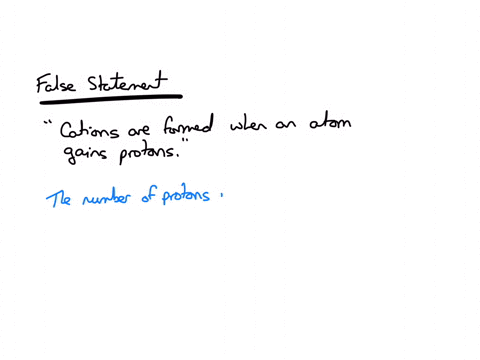 False Statement
"Cations are formed when an atom
gains protons."
The number of protons